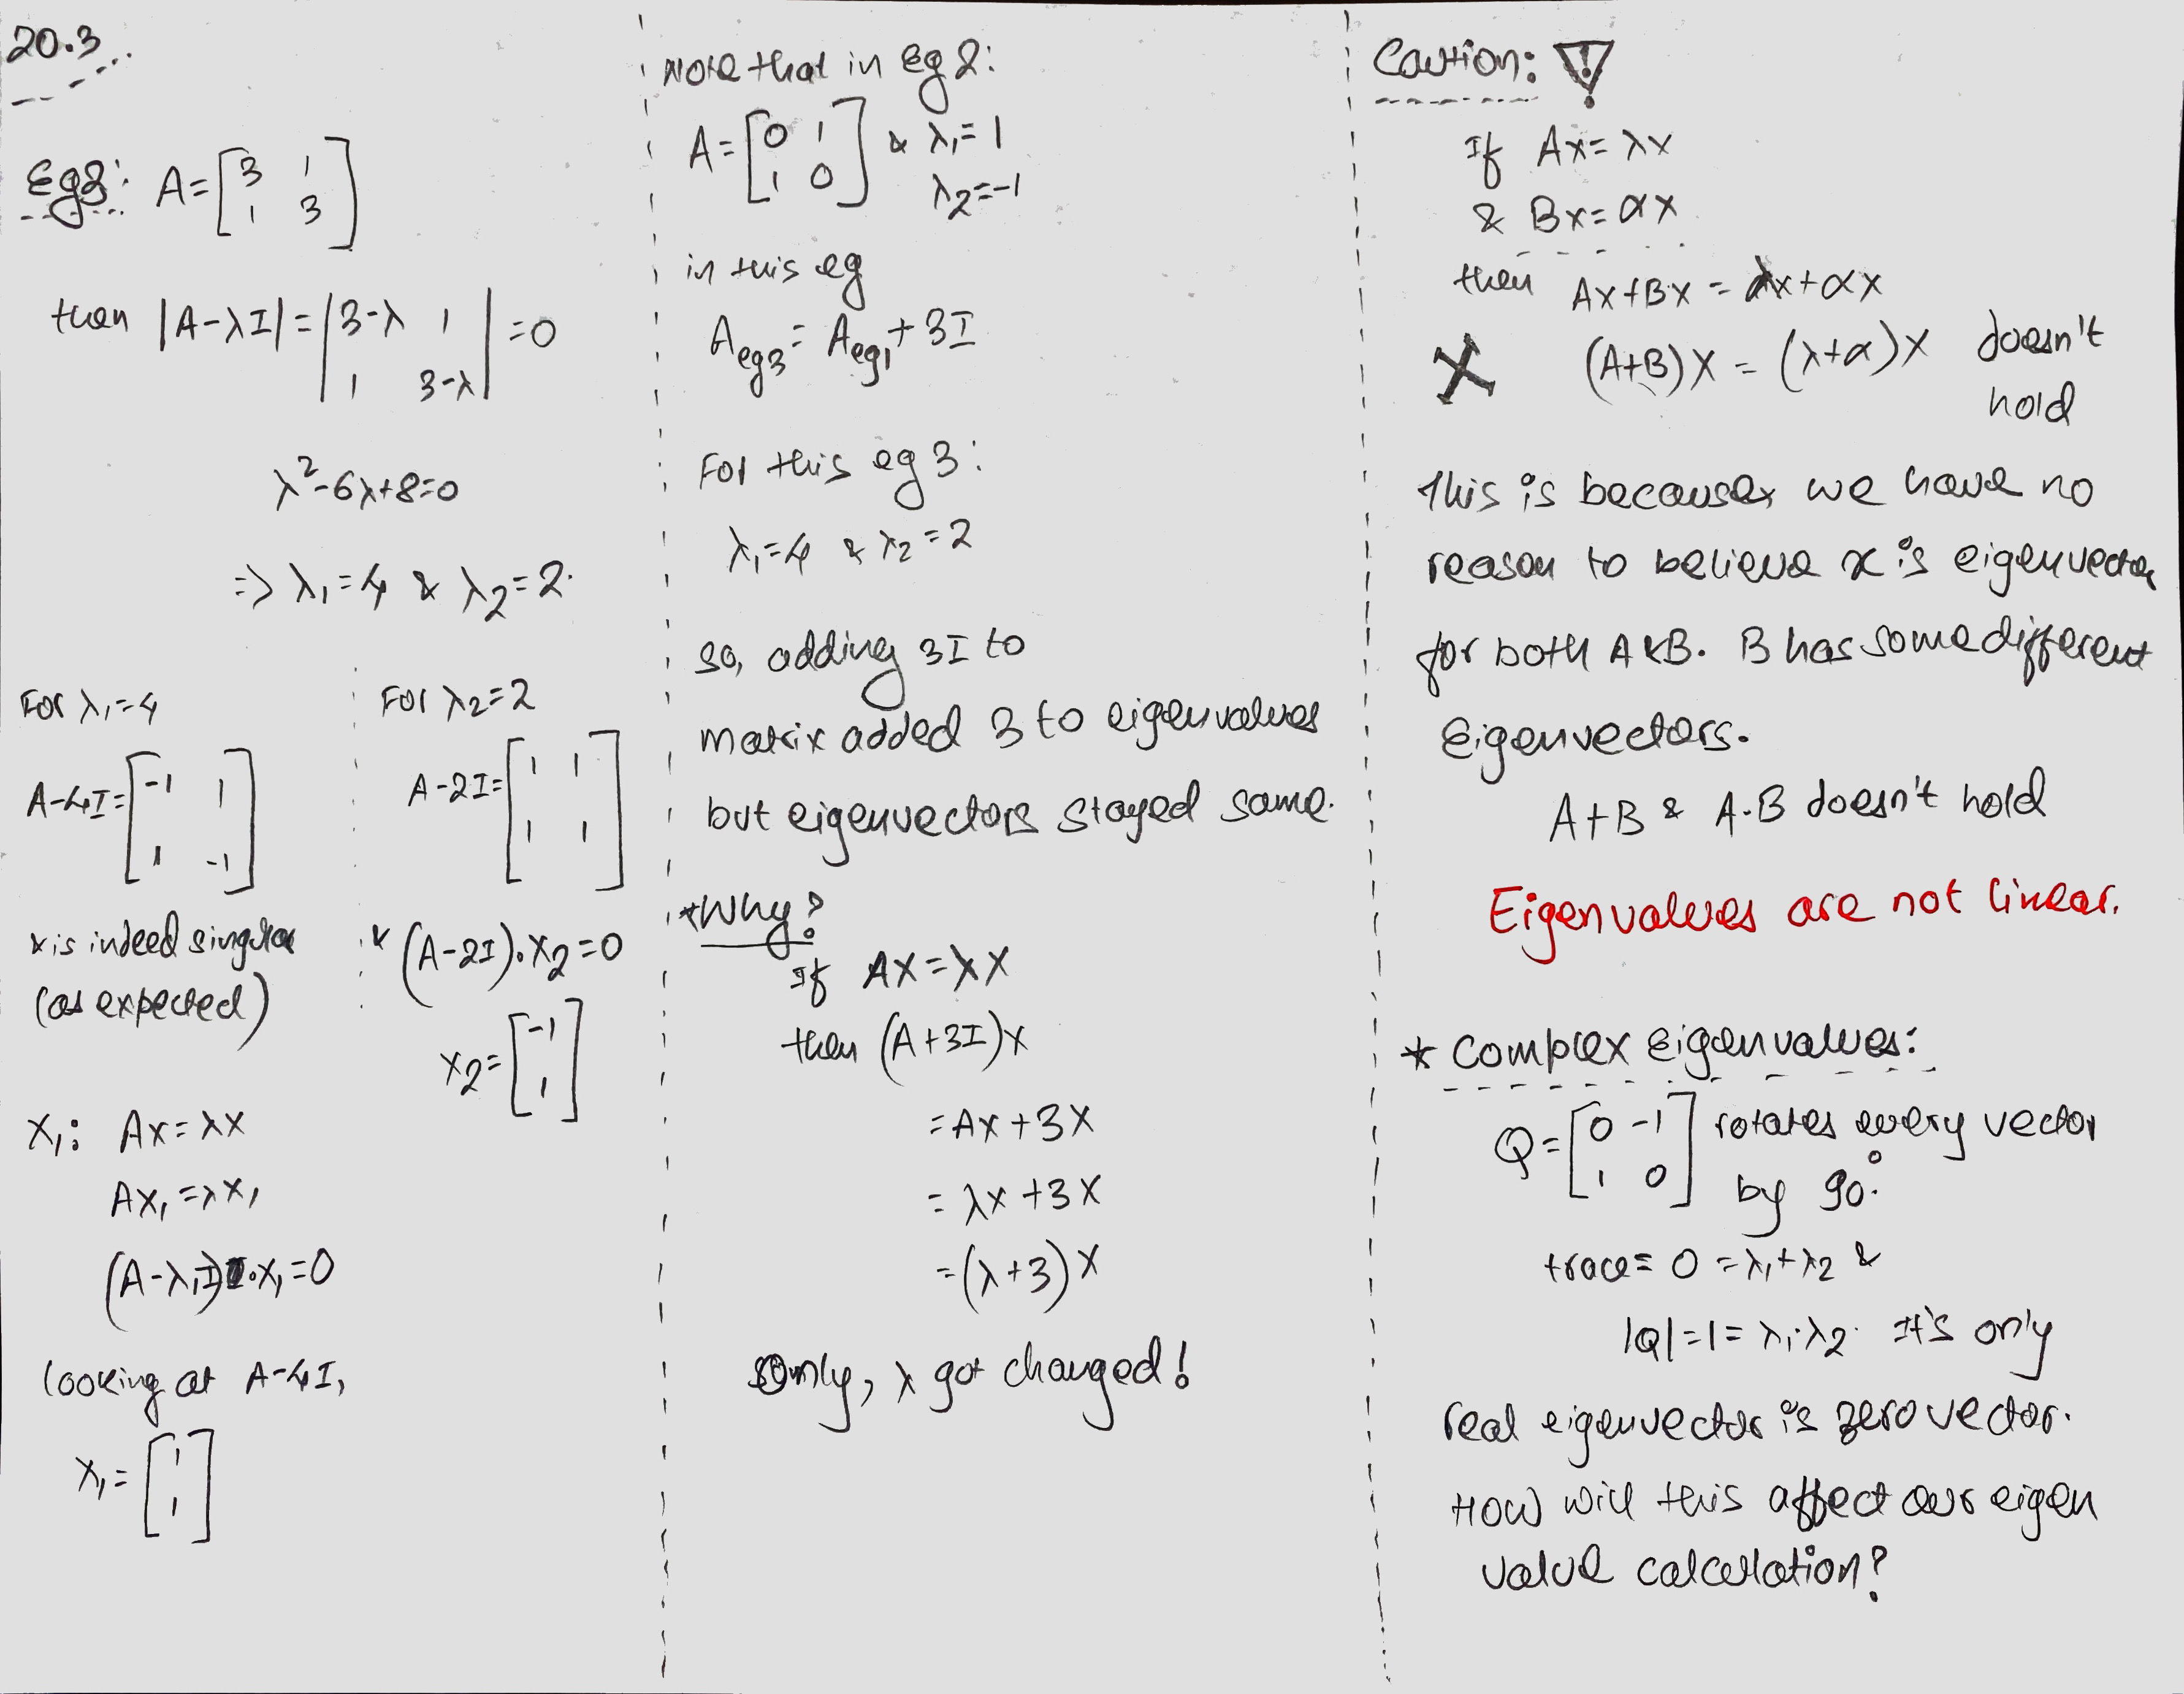 20.3
Eg3: A = [3 1; 1 3]
then |A-λI| = |3-λ 1; 1 3-λ| = 0
λ²-6λ+8=0
=> λ₁=4 & λ₂=2.
For λ₁=4
A-4I = [-1 1; 1 -1]
& is indeed singular
(as expected)
x₁: Ax=λx
Ax₁=λx₁
(A-λ₁I)·x₁=0
looking at A-4I,
x₁ = [1; 1]
For λ₂=2
A-2I = [1 1; 1 1]
& (A-2I)·x₂=0
x₂ = [-1; 1]
Note that in Eg 2:
A = [0 1; 1 0] & λ₁=1
λ₂=-1
in this eg
A_eg3 = A_eg1 + 3I
For this eg 3:
λ₁=4 & λ₂=2
so, adding 3I to
matrix added 3 to eigenvalues
but eigenvectors stayed same.
*Why?
If Ax=λx
then (A+3I)x
=Ax+3x
=λx+3x
=(λ+3)x
Only, λ got changed!
Caution: !
If Ax=λx
& Bx=αx
then Ax+Bx = λx+αx
X (A+B)x = (λ+α)x doesn't
hold
This is because we have no
reason to believe x is eigenvector
for both A&B. B has some different
Eigenvectors.
A+B & A·B doesn't hold
Eigenvalues are not linear.
* Complex Eigenvalues:
Q = [0 -1; 1 0] rotates every vector
by 90°.
trace = 0 = λ₁+λ₂ &
|Q|=1=λ₁·λ₂. It's only
real eigenvector is zero vector.
How will this affect our eigen
value calculation?